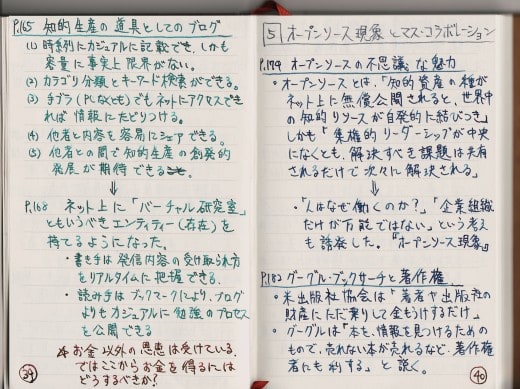 P.165 知的生産の道具としてのブログ
(1) 時系列にカジュアルに記載でき、しかも
容量に事実上限界がない。
(2) カテゴリ分類とキーワード検索ができる。
(3) 手ブラ(PCなくとも)でもネットにアクセスでき
れば情報にたどりつける。
(4) 他者と内容を容易にシェアできる。
(5) 他者との間で知的生産の創発的
発展が期待できる
⇓
P.168 ネット上に「バーチャル研究室」
ともいうべきエンティティー(存在)を
持てるようになった。
・書き手は発信内容の受け取られ方
をリアルタイムに把握できる。
・読み手はブックマークにより、ブログ
よりもカジュアルに勉強のプロセス
を公開できる
お金以外の恩恵は受けている。
ではここからお金を得るには
どうするべきか?
39
5 オープンソース現象とマス・コラボレーション
P.179 オープンソースの不思議な魅力
・オープンソースとは、「知的資産の種が
ネット上に無償公開されると、世界中
の知的リソースが自発的に結びつき」
しかも「集権的リーダーシップが中央
になくとも、解決すべき課題は共有
されるだけで次々に解決される」
⇓
・「人はなぜ働くのか?」「企業組織
だけが万能ではない」という考え
も誘発した。『オープンソース現象』
P.182 グーグル・ブックサーチと著作権
・米出版社協会は「著者や出版社の
財産にただ乗りして金もうけするだけ」
・グーグルは「本を、情報を見つけるための
もので、売れない本が売れるなど、著作権
者にも利する」と説く。
40